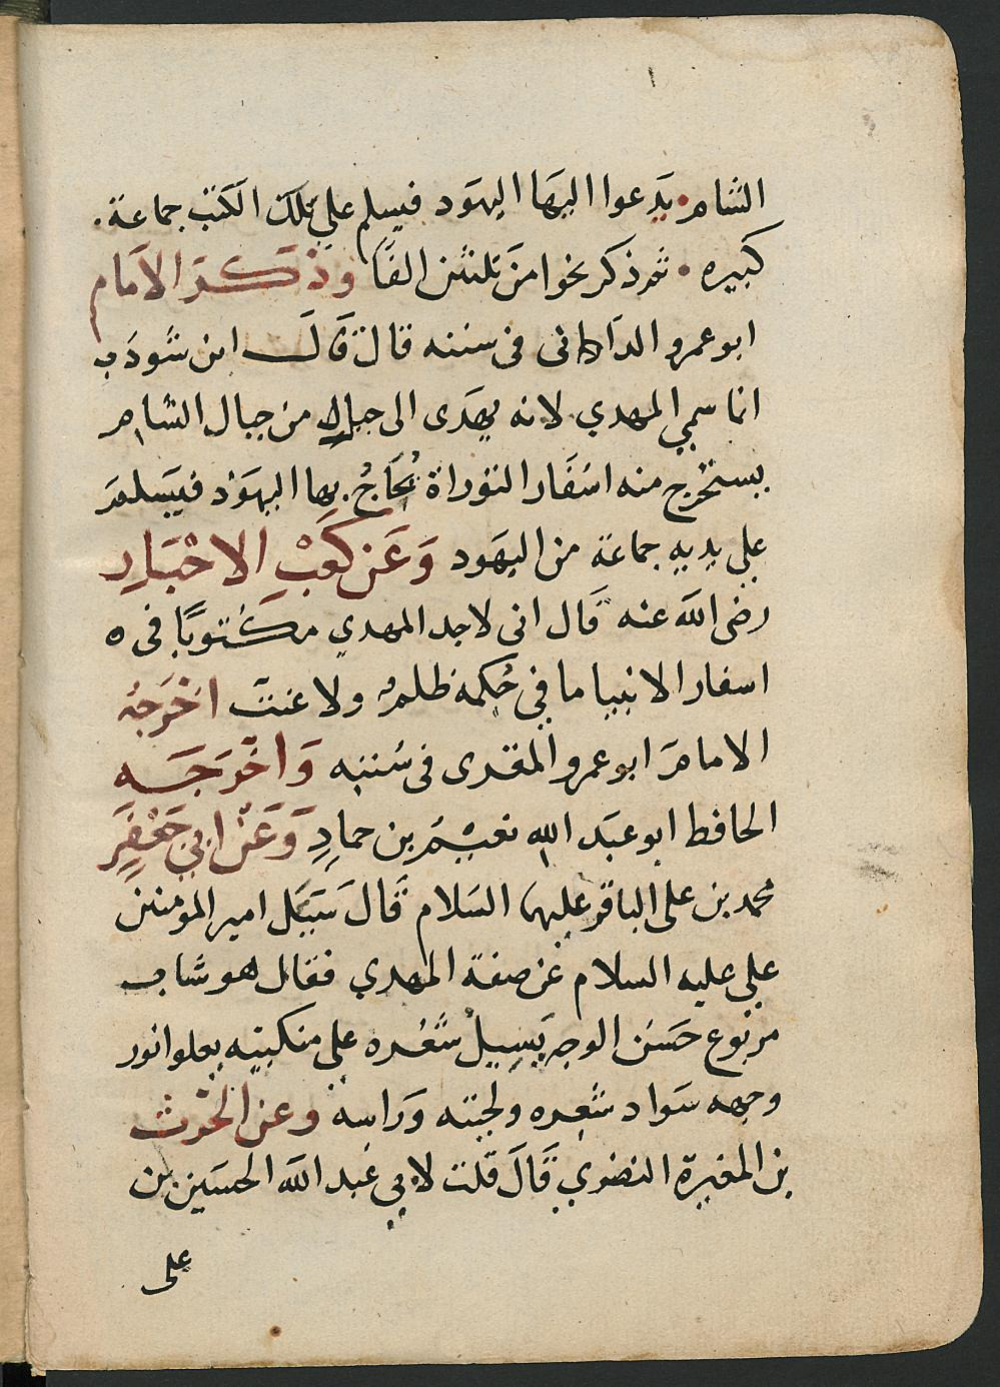 الشام يدعوا اليها اليهود فيسلم علي تلك الكتب جماعة
كبيره ثم ذكر نحوا من ثلثين الفا وذكر الامام
ابو عمرو الداني في سننه قال قال ابن شودب
انما سمي المهدي لانه يهدى الى جبل من جبال الشام
يستخرج منه اسفار التوراة يحاج بها اليهود فيسلم
علي يديه جماعة من اليهود وعن كعب الاحبار
رضى الله عنه قال انى لاجد المهدي مكتوبا فى
اسفار الانبيا ما في حكمه ظلم ولا عنت اخرجه
الامام ابو عمرو المقرى فى سننه واخرجه
الحافظ ابو عبد الله نعيم بن حماد وعن ابي جعفر
محمد بن على الباقر عليهما السلام قال سيل امير المومنين
علي عليه السلام عن صفة المهدي فقال هو شاب
مربوع حسن الوجه يسيل شعره علي منكبيه يعلوا نور
وجهه سواد شعره ولحيته وراسه وعن الحرث
بن المغيرة النضري قال قلت لابي عبد الله الحسين بن
على